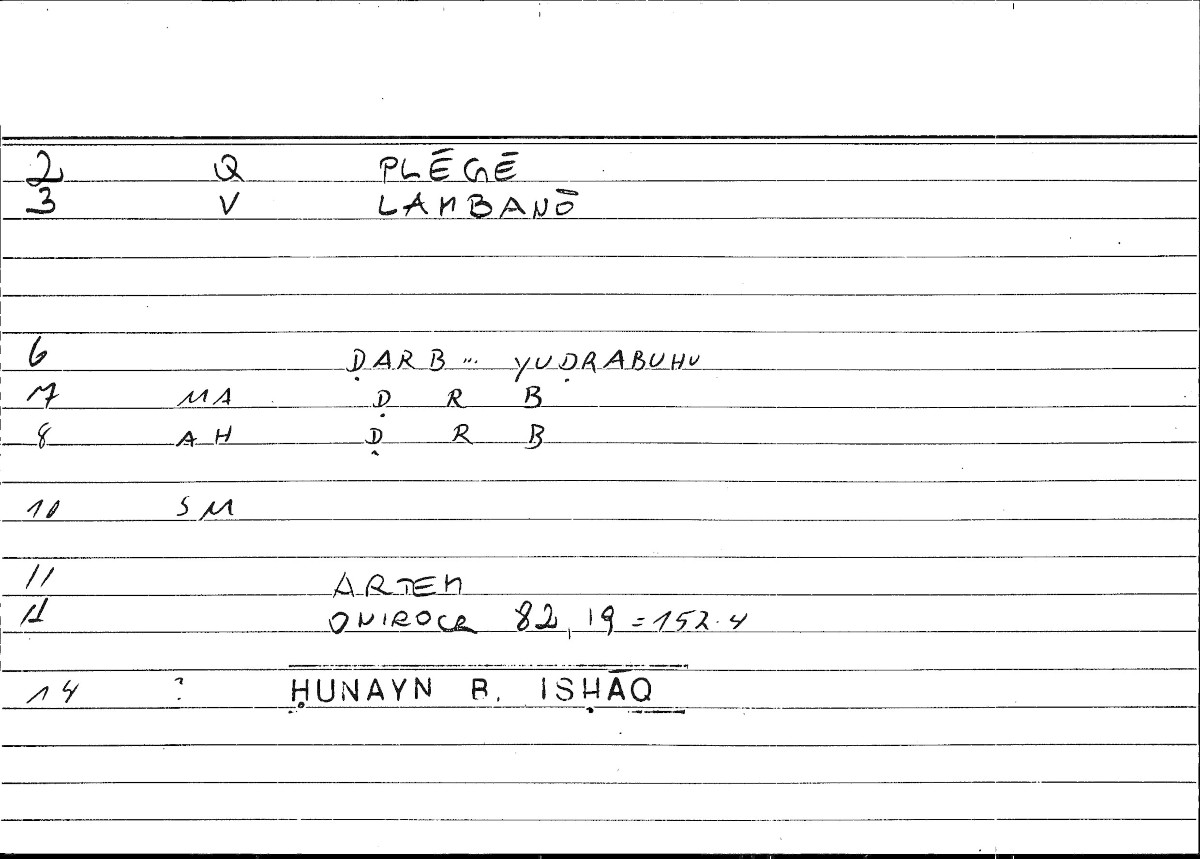 2 Q PLĒGĒ
3 V LAMBANŌ
6 ḌARB ... YUḌRABUHU
7 MA Ḍ R B
8 AH Ḍ R B
10 SM
11 ARTEM
11 ONIROCR 82,19 = 152.4
14 ? ḤUNAYN B. ISḤĀQ